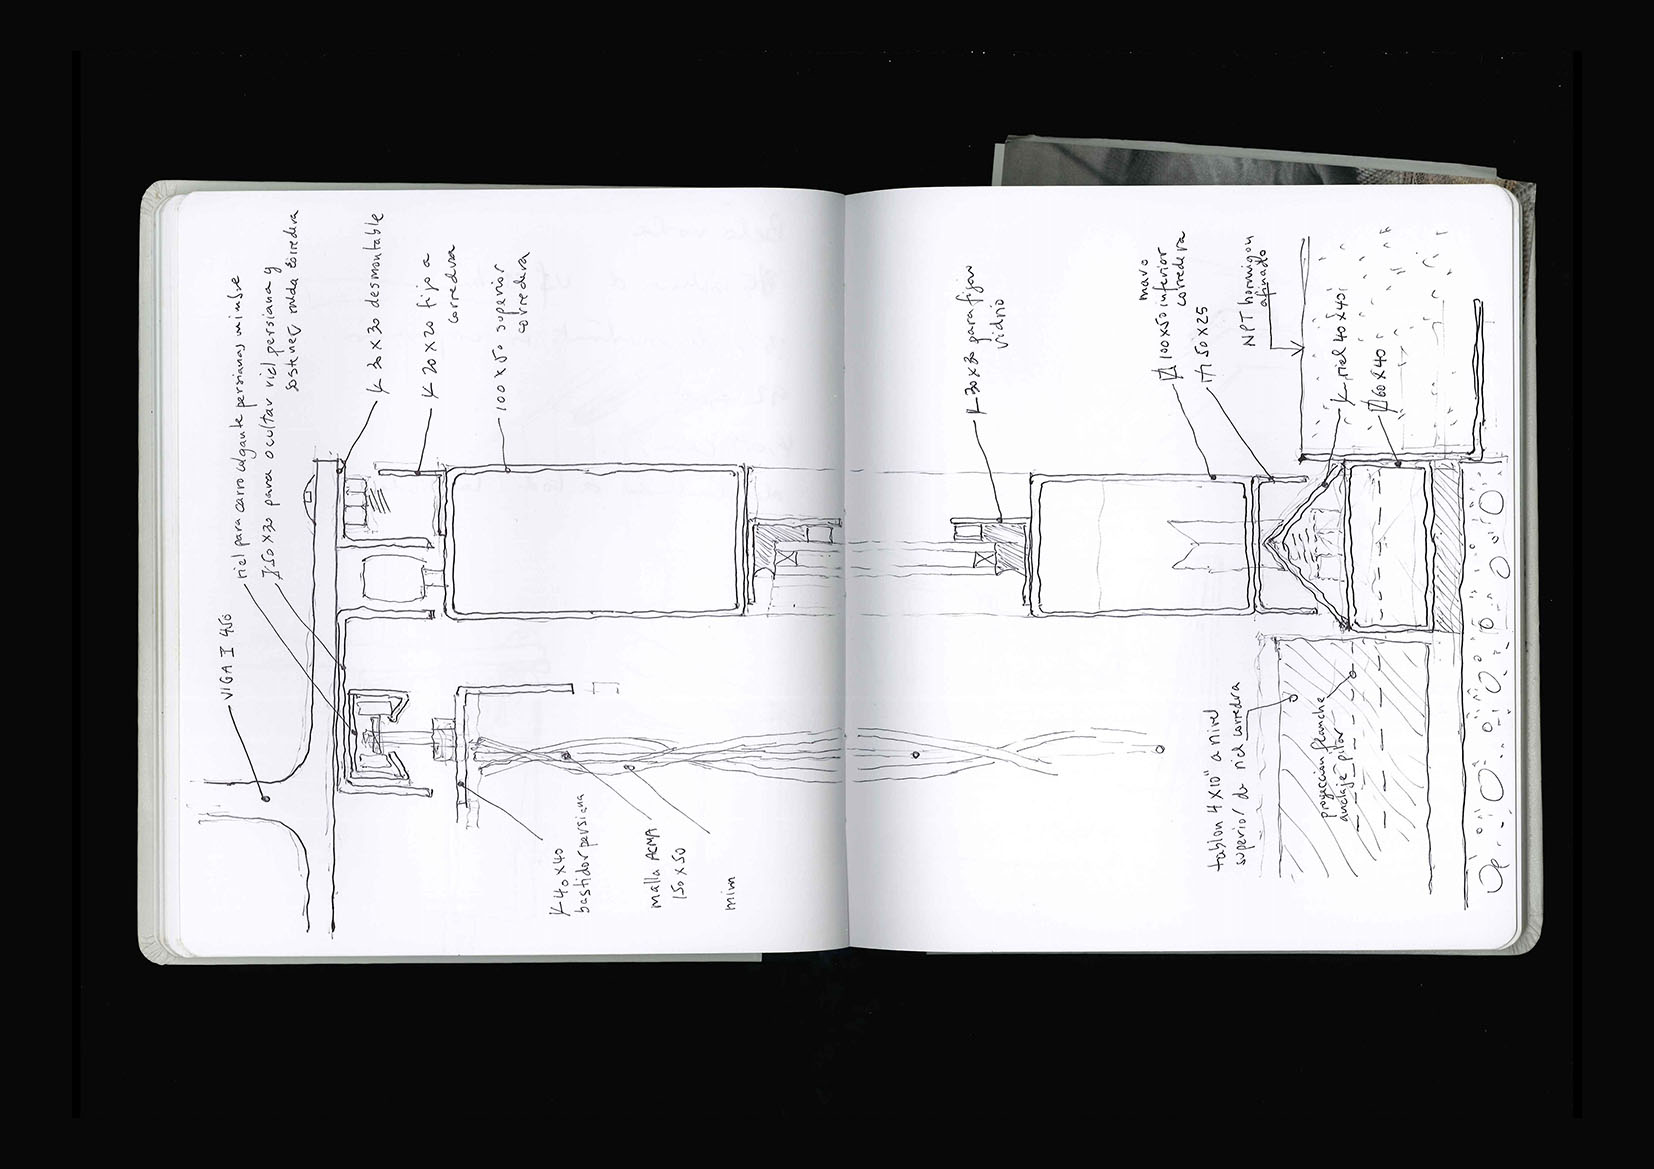 VIGA I 450
riel para carro colgante persianas mimbre
50x30 para ocultar riel persiana y
sostener rueda corredera
L 30x30 desmontable
L 20x20 fijo a
corredera
100x50 superior
corredera
L 40x40
bastidor persiana
malla ACMA
150x50
mim
L 30x30 para fijar
vidrio
marco
100x50 inferior
corredera
50x25
NPT hormigon
afinado
L riel 40x40
60x40
tablon 4x10" a nivel
superior de riel corredera
proyeccion planche
anclaje pilar